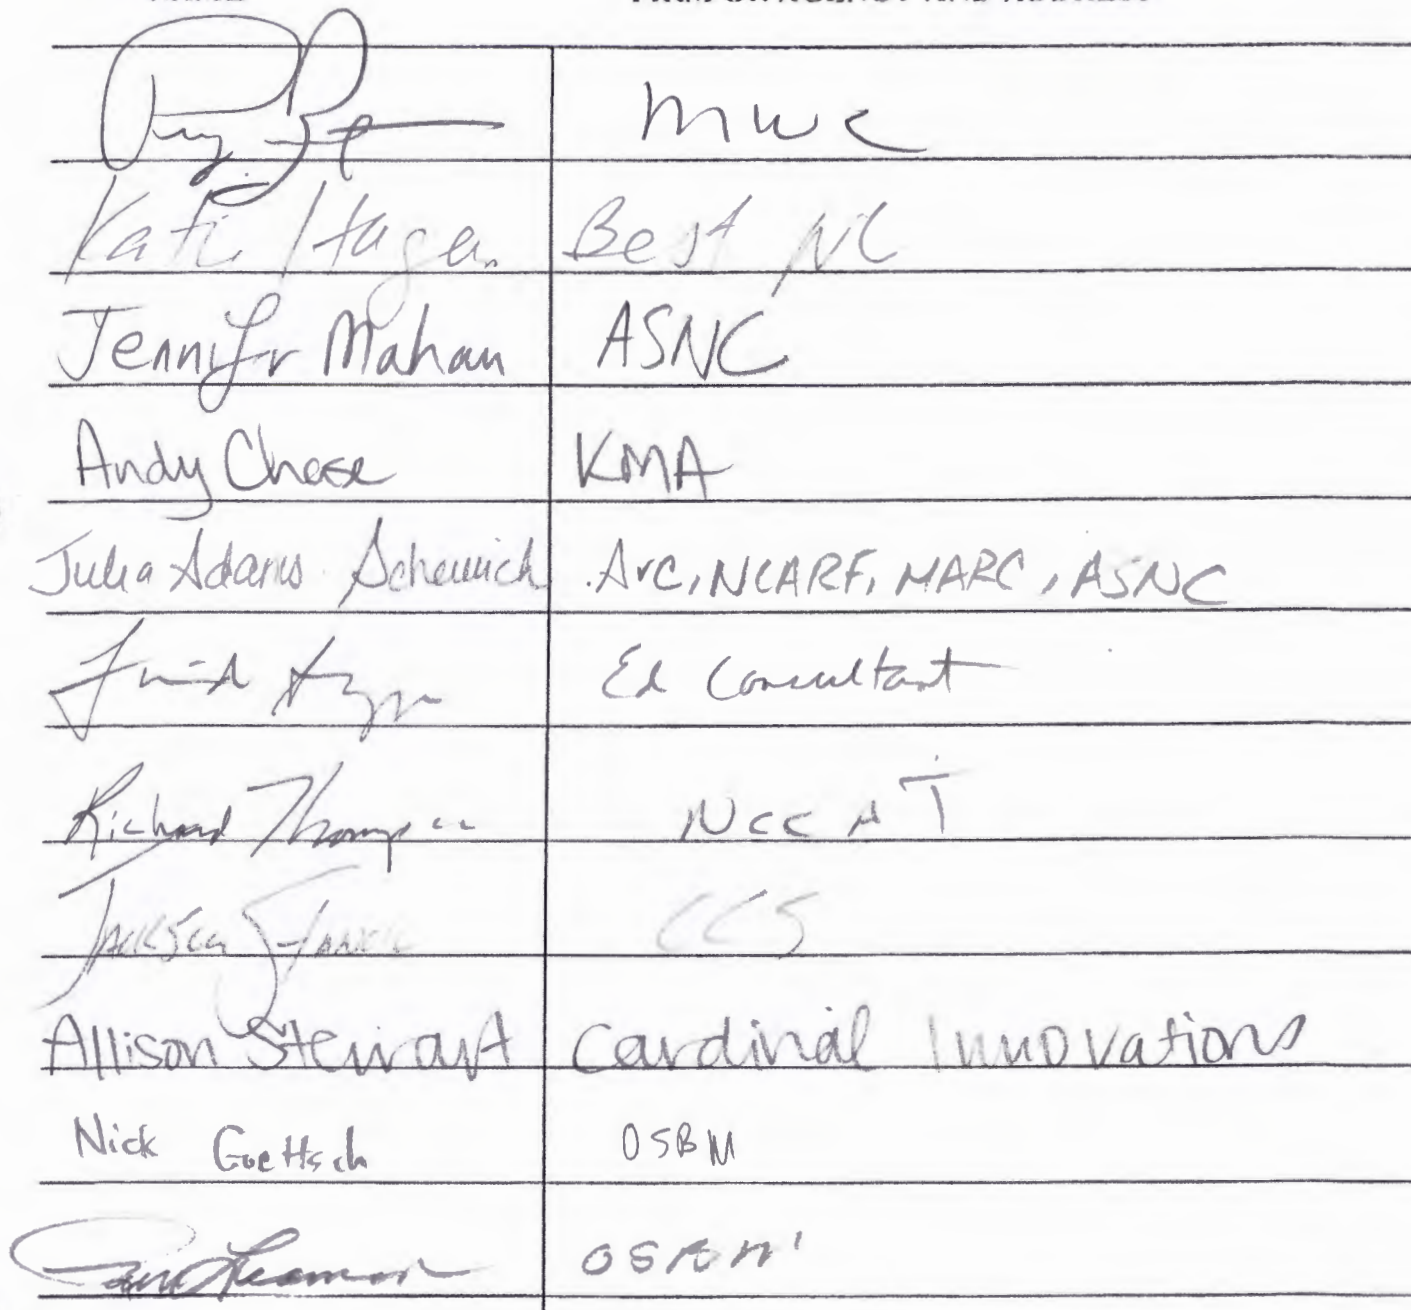 MWC
Kati Hagen Best NC
Jennifer Mahan ASNC
Andy Chase KMA
Julia Adams Scheurich Arc, NCARF, MARC, ASNC
Ed Consultant
Richard Thompson NCCAT
Jackson Stancil CCS
Allison Stewart Cardinal Innovations
Nick Goettsch OSBM
OSBM